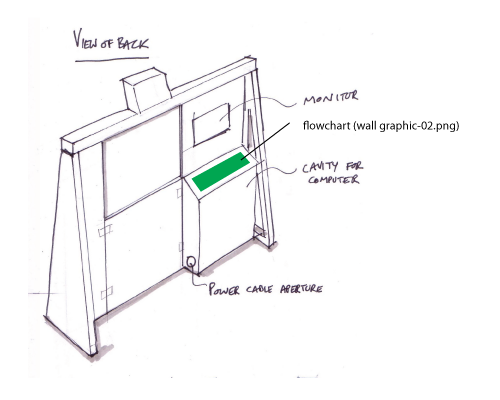 VIEW OF BACK
MONITOR
flowchart (wall graphic-02.png)
CAVITY FOR
COMPUTER
POWER CABLE APERTURE